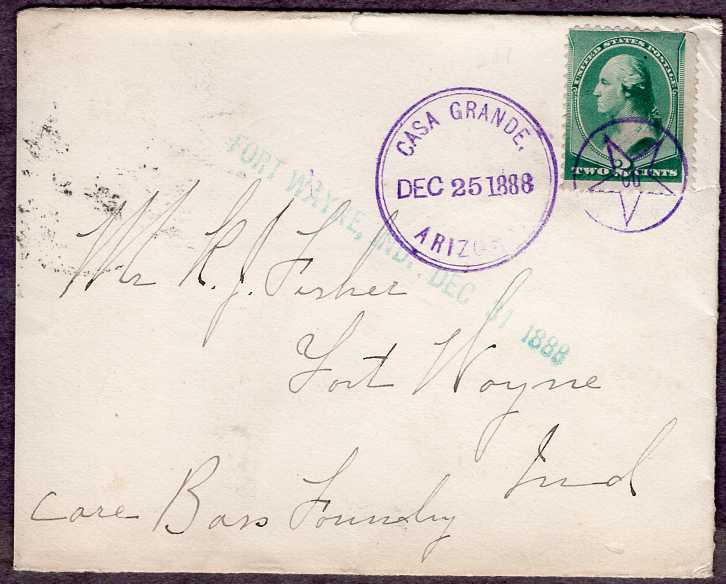 UNITED STATES POSTAGE
TWO 2 CENTS
CASA GRANDE,
DEC 25 1888
ARIZONA
FORT WAYNE, IND. DEC 31 1888
Mr R. J. Fisher
Fort Wayne
Ind
care Bass Foundry